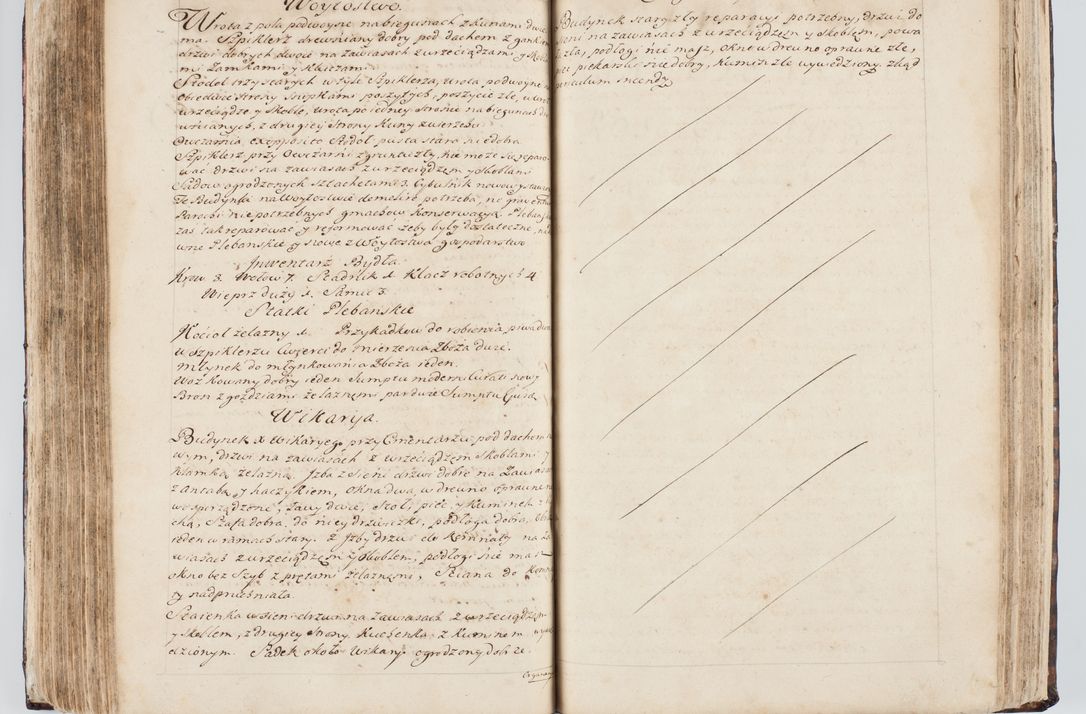 Woytostwo.
Wrota z pola podwoyne, na biegunach z kunami dwie
ma. Szpiklerz drewniany dobry pod dachem z gankiem
drzwi dobrych dwoie na zawiasach z wrzeciądzami y Skob
mi Zamkami y Kluczami.
Stodoł trzy starych w tyle Szpiklerza, wrota podwoyne
obiedwie strony Snopkami poszytych, poszycie złe, u wrot
wrzeciądze y Skoble, wrota po iedney stronie na biegunach
z drugiey strony Kuny z wierzchu
Owczarnia ex opposito Stodoł pusta stara nie dobra
Szpiklerz przy Owczarni z gruntu zły, nie może się reparo-
wać drzwi na zawiasach z wrzeciądzem y Skoblami
Sadow ogrodzonych sztachetami 3. Cybulnik nowowystawio
Te Budynki na Woytostwie demoliri potrzeba, ne graventur
Parochi niepotrzebnych gmachow Konserwacyą. Plebanskie
zaś tak reparować y reformować zeby były dostateczne,
wne Plebanskie y nowe z Woytostwa gospodarstwo
Inwentarz Bydła.
Krow 8. Wołow 7. Stadnik 1. Klacz robotnych 4
Wieprz duży 1. Samic 3.
Statki Plebanskie
Kocioł żelazny 1. Przykadkow do robienia piwa dwa
w szpiklerzu Cwierci do mierzenia Zboza dwie.
Młynek do młynkowania Zboża ieden.
Woz Kowany dobry ieden Sumptu moderni Curati nowy
Bron z goździami żelaznemi par dwie Sumptu Curati
Wikarya.
Budynek X Wikaryego przy Cmentarzu, pod dachem no
wym, drzwi na zawiasach z wrzeciądzem Skoblami y
klamką żelazną. Izba z Sieni drzwi dobre na Zawiasach
z antabą y haczykiem, okna dwa, w drewno oprawne
wosporządzone, Ławy dwie, Stoł, piec, y Kuminek
cka, Szafa dobra, do niey drzwiczki, podłoga dobra,
ieden w ramach stary. z Izby drzwi do Kemnaty na za
wiasach z wrzeciądzem y Skoblem, podłogi nie ma
okno bez Szyb z prętami żelaznemi, Sciana do Kemna
ty nadpruchniała.
Staienka w sieni drzwi na zawiasach z wrzeciądzem
y Skoblem, z drugiey strony Kuchenka z Kuminem
dzionym. Sadek około Wikaryi ogrodzony dobrze.
Organary
Budynek stary zły reparacyi potrzebny, drzwi do
sieni na zawiasach z wrzeciądzem y Skoblem, powa
ła zła, podłogi nie masz, okno w drewno oprawne złe,
piec piekarski nie dobry, Kumin zle wywiedziony zkąd
periculum incendy